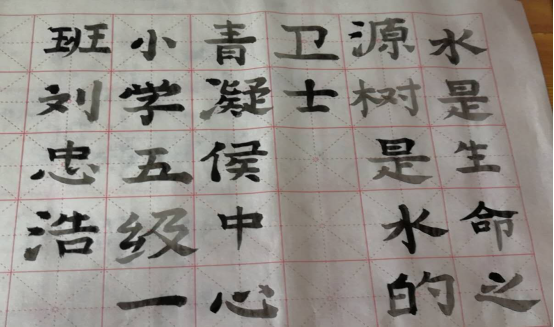 水是生命之
源树是水的
卫士
青凝侯中心
小学五级一
班刘忠浩